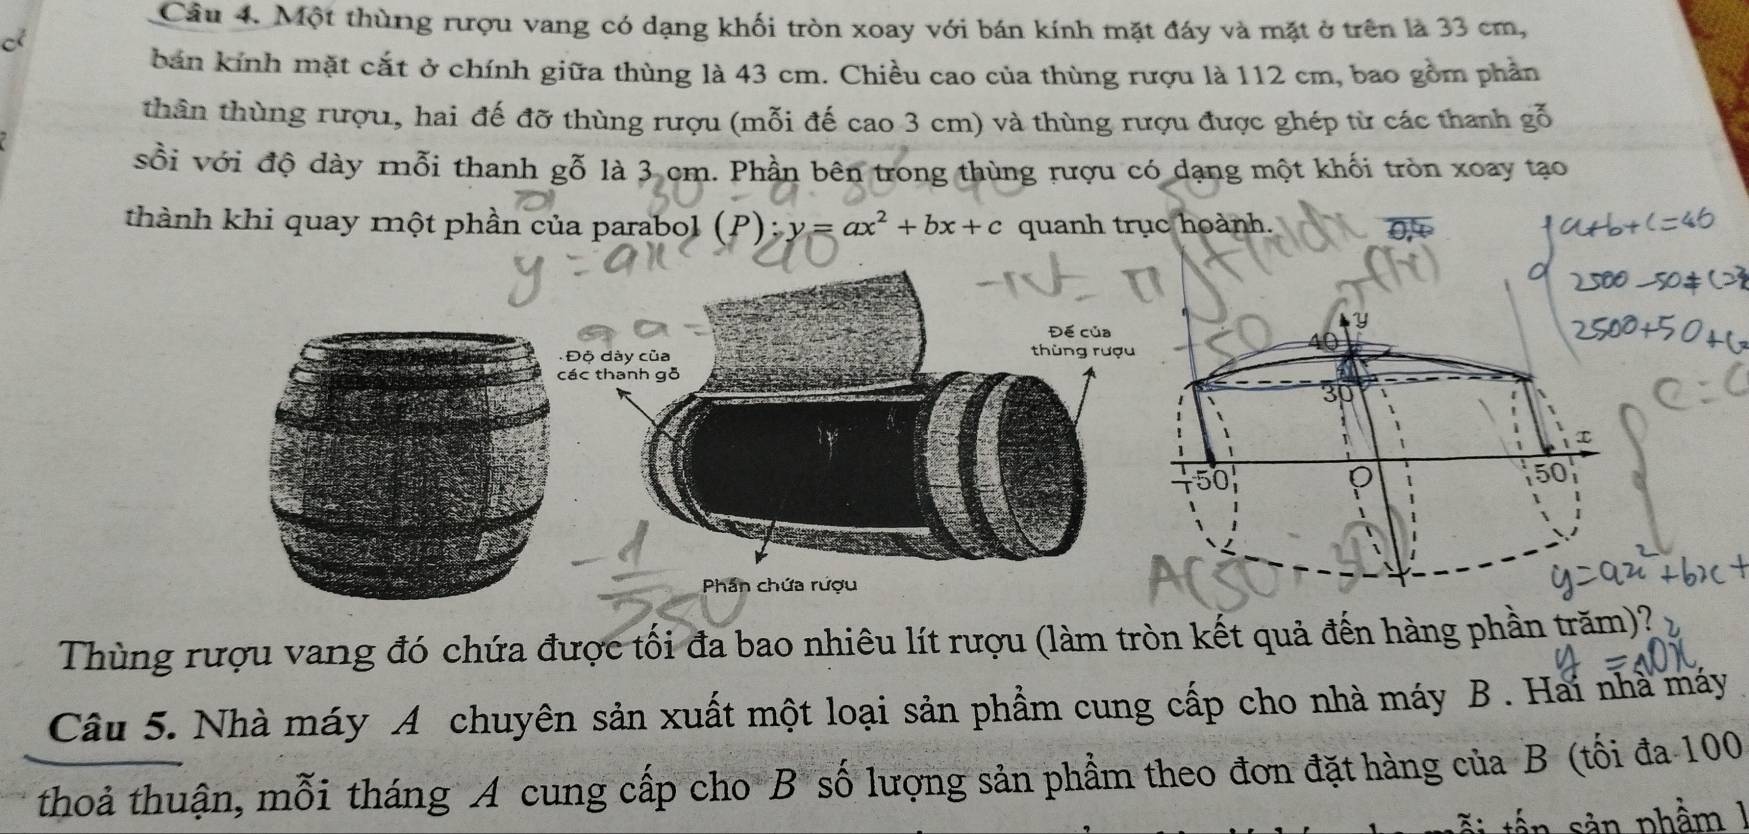 Câu 4. Một thùng rượu vang có dạng khối tròn xoay với bán kính mặt đáy và mặt ở trên là 33 cm,
bán kính mặt cắt ở chính giữa thùng là 43 cm. Chiều cao của thùng rượu là 112 cm, bao gồm phần
thân thùng rượu, hai đế đỡ thùng rượu (mỗi đế cao 3 cm) và thùng rượu được ghép từ các thanh gỗ
sồi với độ dày mỗi thanh gỗ là 3 cm. Phần bên trong thùng rượu có dạng một khối tròn xoay tạo
thành khi quay một phần của parabol (P): y = ax² + bx + c quanh trục hoành.
a+b+c=40
y = ax² + 40
2500 -50
2500+50+c
Độ dày của
các thanh gỗ
Đế của
thùng rượu
Phần chứa rượu
y
40
30
x
-50
O
50
-1/250
A(50; 30)
y=ax²+bx+
Thùng rượu vang đó chứa được tối đa bao nhiêu lít rượu (làm tròn kết quả đến hàng phần trăm)?
Câu 5. Nhà máy A chuyên sản xuất một loại sản phẩm cung cấp cho nhà máy B . Hai nhà máy
thoả thuận, mỗi tháng A cung cấp cho B số lượng sản phẩm theo đơn đặt hàng của B (tối đa 100
tấn sản phẩm